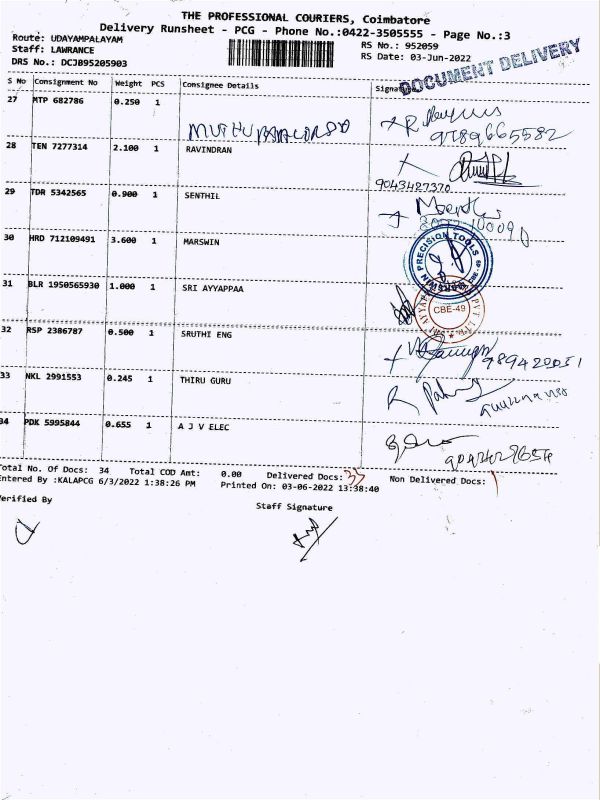 THE PROFESSIONAL COURIERS, Coimbatore
Delivery Runsheet - PCG - Phone No.:0422-3505555 - Page No.:3
Route: UDAYAMPALAYAM
RS No.: 952059
Staff: LAWRANCE
RS Date: 03-Jun-2022
DRS No.: DCJB95205903
DOCUMENT DELIVERY
S No Consignment No Weight PCS Consignee Details Signature
27 MTP 682786 0.250 1
9789665582
28 TEN 7277314 2.100 1 RAVINDRAN
9043427370
29 TDR 5342565 0.900 1 SENTHIL
30 HRD 712109491 3.600 1 MARSWIN
MARSWIN PRECISION TOOLS CBE-49
31 BLR 1950565930 1.000 1 SRI AYYAPPAA
CBE-49
32 RSP 2386787 0.500 1 SRUTHI ENG
33 NKL 2991553 0.245 1 THIRU GURU
34 PDK 5995844 0.655 1 A J V ELEC
Total No. Of Docs: 34 Total COD Amt: 0.00 Delivered Docs: 33 Non Delivered Docs: 1
Entered By :KALAPCG 6/3/2022 1:38:26 PM Printed On: 03-06-2022 13:38:40
Verified By
Staff Signature